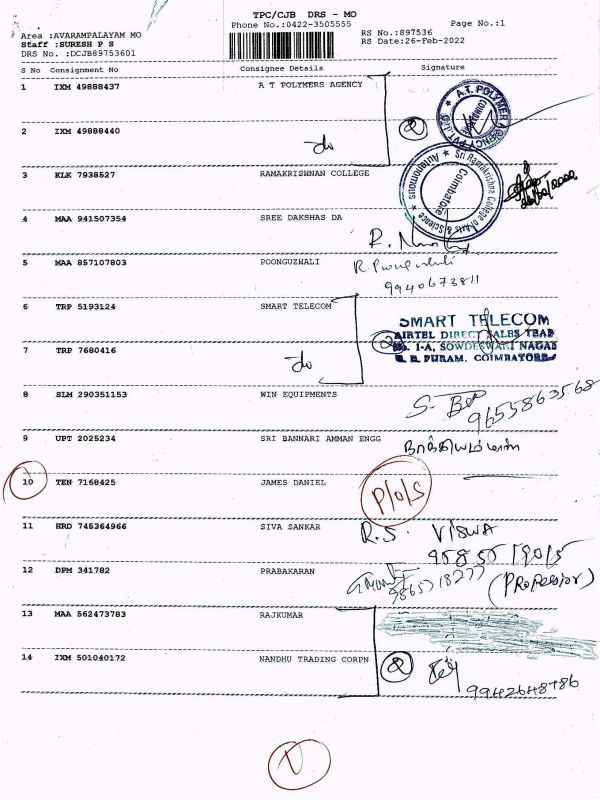 TPC/CJB DRS - MO
Phone No.:0422-3505555
Page No.:1
Area :AVARAMPALAYAM MO
Staff :SURESH P S
DRS No. :DCJB89753601
RS No.:897536
RS Date:26-Feb-2022
S No Consignment No Consignee Details Signature
1 IXM 49888437 A T POLYMERS AGENCY
A.T. POLYMER AGENCY PVT. LTD COIMBATORE
2 IXM 49888440 do 2
3 KLK 7938527 RAMAKRISHNAN COLLEGE
Sri Ramakrishna College of Arts & Science Autonomous Coimbatore
4 MAA 941507354 SREE DAKSHAS DA R.
5 MAA 857107803 POONGUZHALI R.
9940673811
6 TRP 5193124 SMART TELECOM
SMART TELECOM
AIRTEL DIRECT SALES TEAM
No. 1-A, SOWDESWARI NAGAR
R. S. PURAM, COIMBATORE
2
7 TRP 7680416 do
8 SLM 290351153 WIN EQUIPMENTS S.
9655863568
9 UPT 2025234 SRI BANNARI AMMAN ENGG
10 TEN 7168425 JAMES DANIEL P/O/S
11 HRD 745364966 SIVA SANKAR R.S. VISWA
12 DPM 341782 PRABAKARAN
9865718277
(Professor)
13 MAA 562473783 RAJKUMAR
14 IXM 501040172 NANDHU TRADING CORPN 2
9942648786